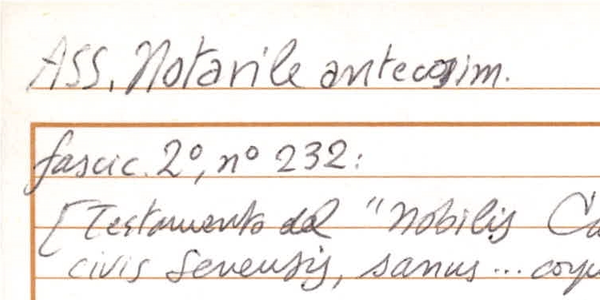 ASS, Notarile antecosim.
fascic. 2º, nº 232:
[Testamento del "Nobilis
civis Senensis, sanus...